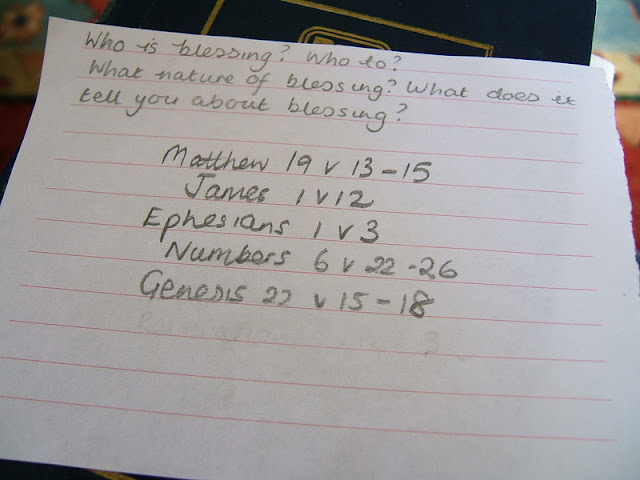 Who is blessing? Who to?
What nature of blessing? What does it
tell you about blessing?
Matthew 19 v 13-15
James 1 v 12
Ephesians 1 v 3
Numbers 6 v 22-26
Genesis 22 v 15-18